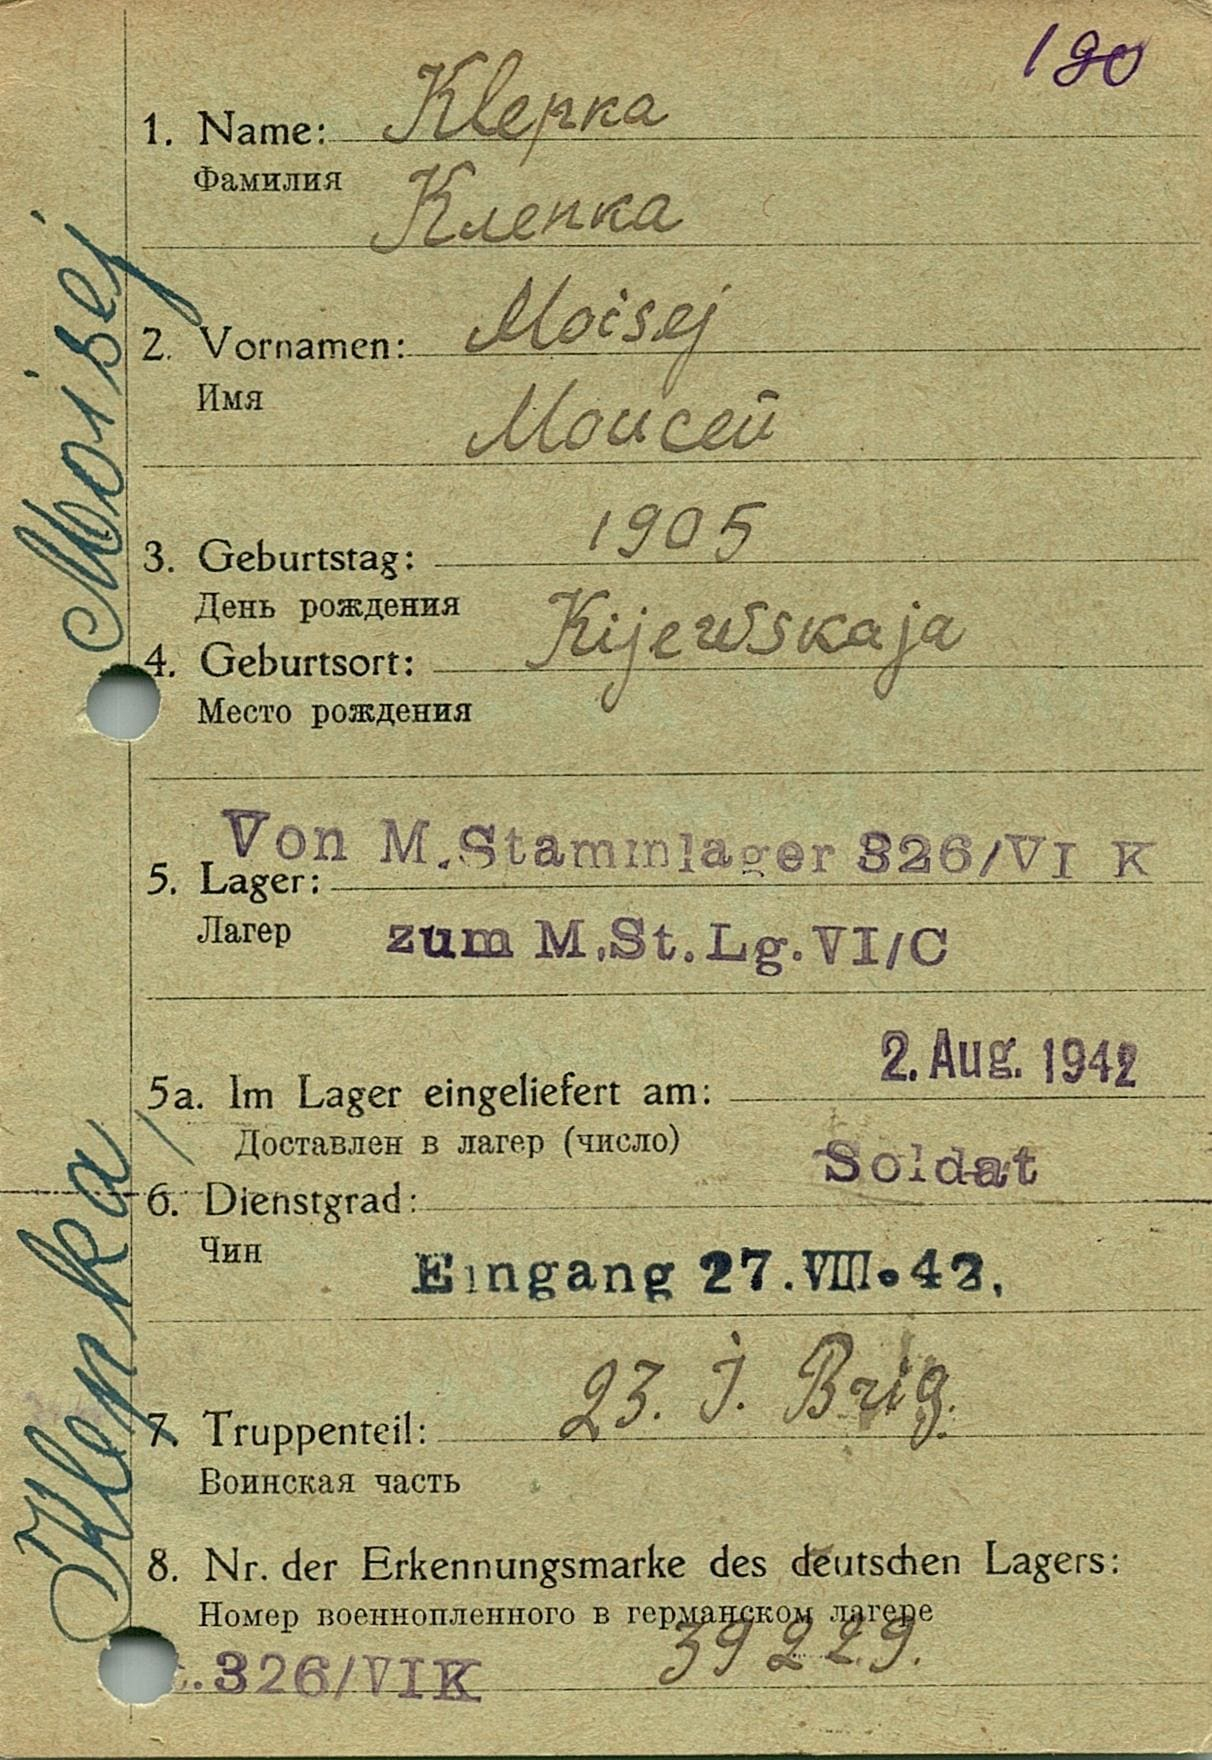 190
1. Name: Klepka
Фамилия
Клепка
2. Vornamen: Moisej
Имя
Моисей
3. Geburtstag: 1905
День рождения
4. Geburtsort: Kijewskaja
Место рождения
Von M.Stammlager 326/VI K
5. Lager:
Лагер
zum M.St.Lg.VI/C
2. Aug. 1942
5a. Im Lager eingeliefert am:
Доставлен в лагер (число)
Soldat
6. Dienstgrad:
Чин
Eingang 27.VIII.42.
7. Truppenteil: 23. J. Brig.
Воинская часть
8. Nr. der Erkennungsmarke des deutschen Lagers:
Номер военнопленного в германском лагере
39229.
.326/VIK
Klenka, Moisej